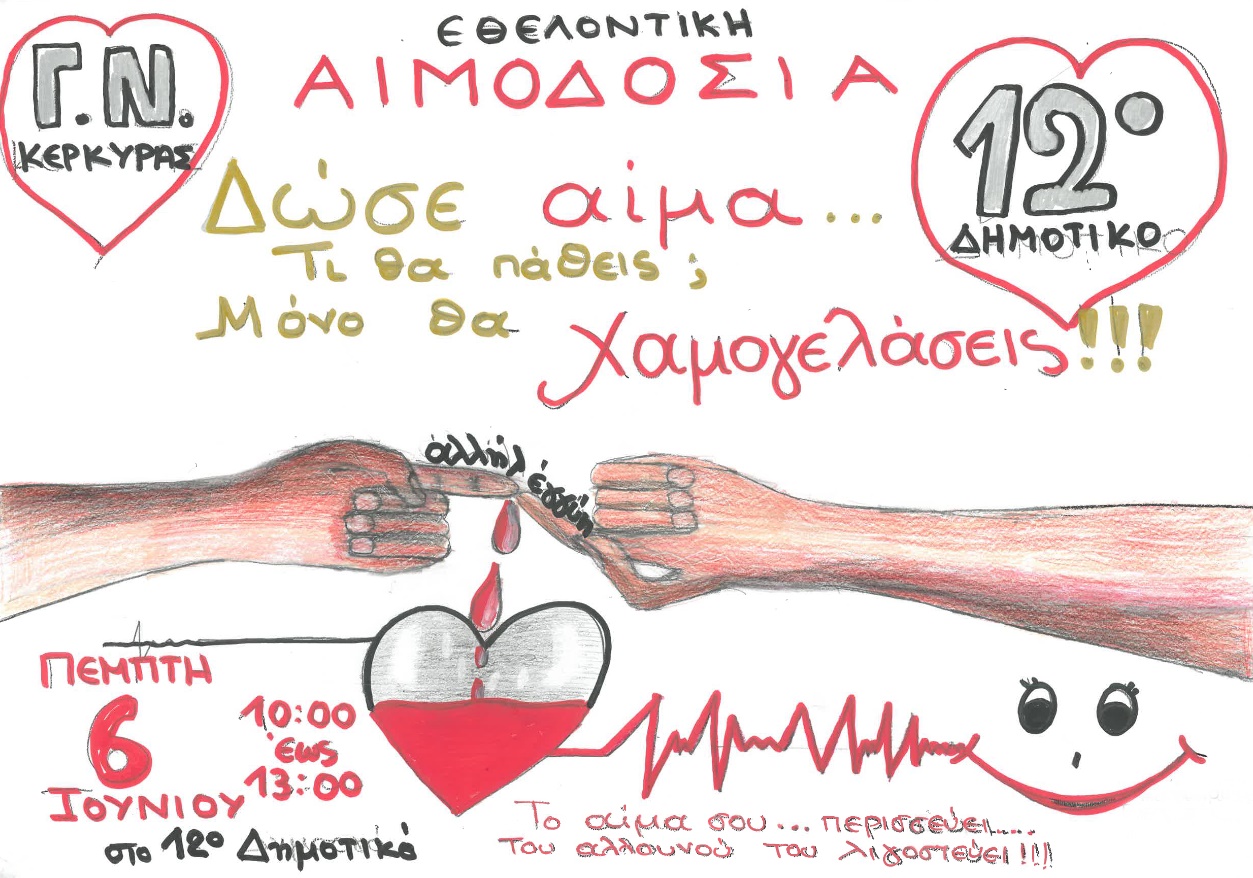 ΕΘΕΛΟΝΤΙΚΗ
ΑΙΜΟΔΟΣΙΑ
Γ.Ν.
ΚΕΡΚΥΡΑΣ
12ο
ΔΗΜΟΤΙΚΟ
Δώσε αίμα...
Τι θα πάθεις;
Μόνο θα
χαμογελάσεις!!!
αλληλ έγγύη
ΠΕΜΠΤΗ
6
ΙΟΥΝΙΟΥ
10:00
έως
13:00
στο 12ο Δημοτικό
Το αίμα σου... περισσεύει....
του αλλουνού του λιγοστεύει!!!